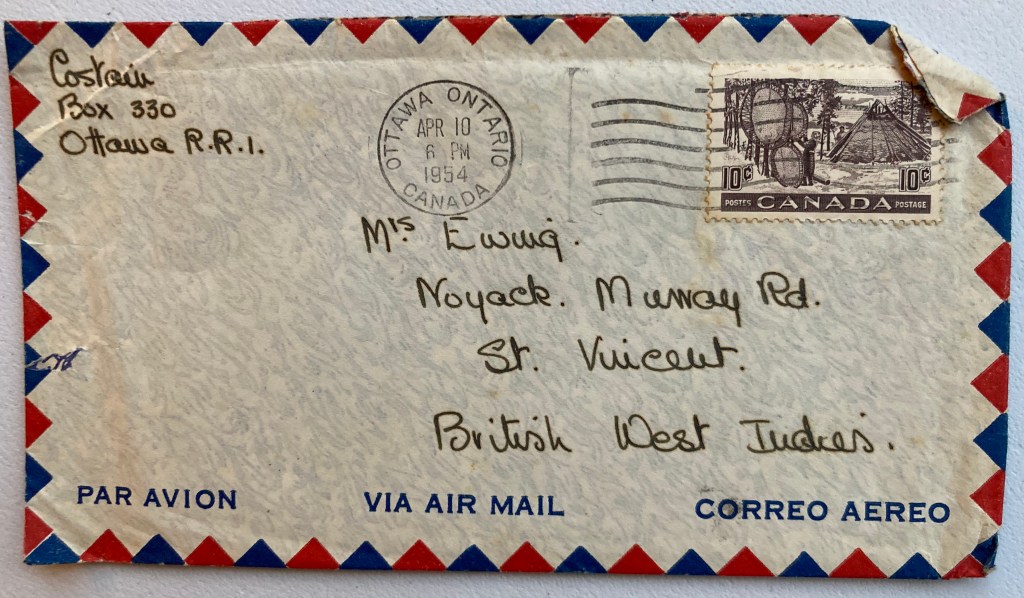 Costain
Box 330
Ottawa R.R.1.
OTTAWA ONTARIO
APR 10
6 PM
1954
CANADA
10¢ 10¢
POSTES CANADA POSTAGE
Mrs Ewing.
Noyack. Murray Rd.
St. Vincent.
British West Indies.
PAR AVION VIA AIR MAIL CORREO AEREO